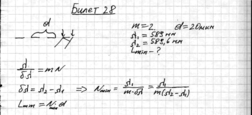 Билет 28
d
m = 2 d = 20мкм
λ₁ = 589 нм
λ₂ = 589,6 нм
Lmin - ?
λ/δλ = mN
δλ = λ₂ - λ₁ ⇒ Nmin = λ₁/(m·δλ) = λ₁/(m(λ₂-λ₁))
Lmin = Nmin d